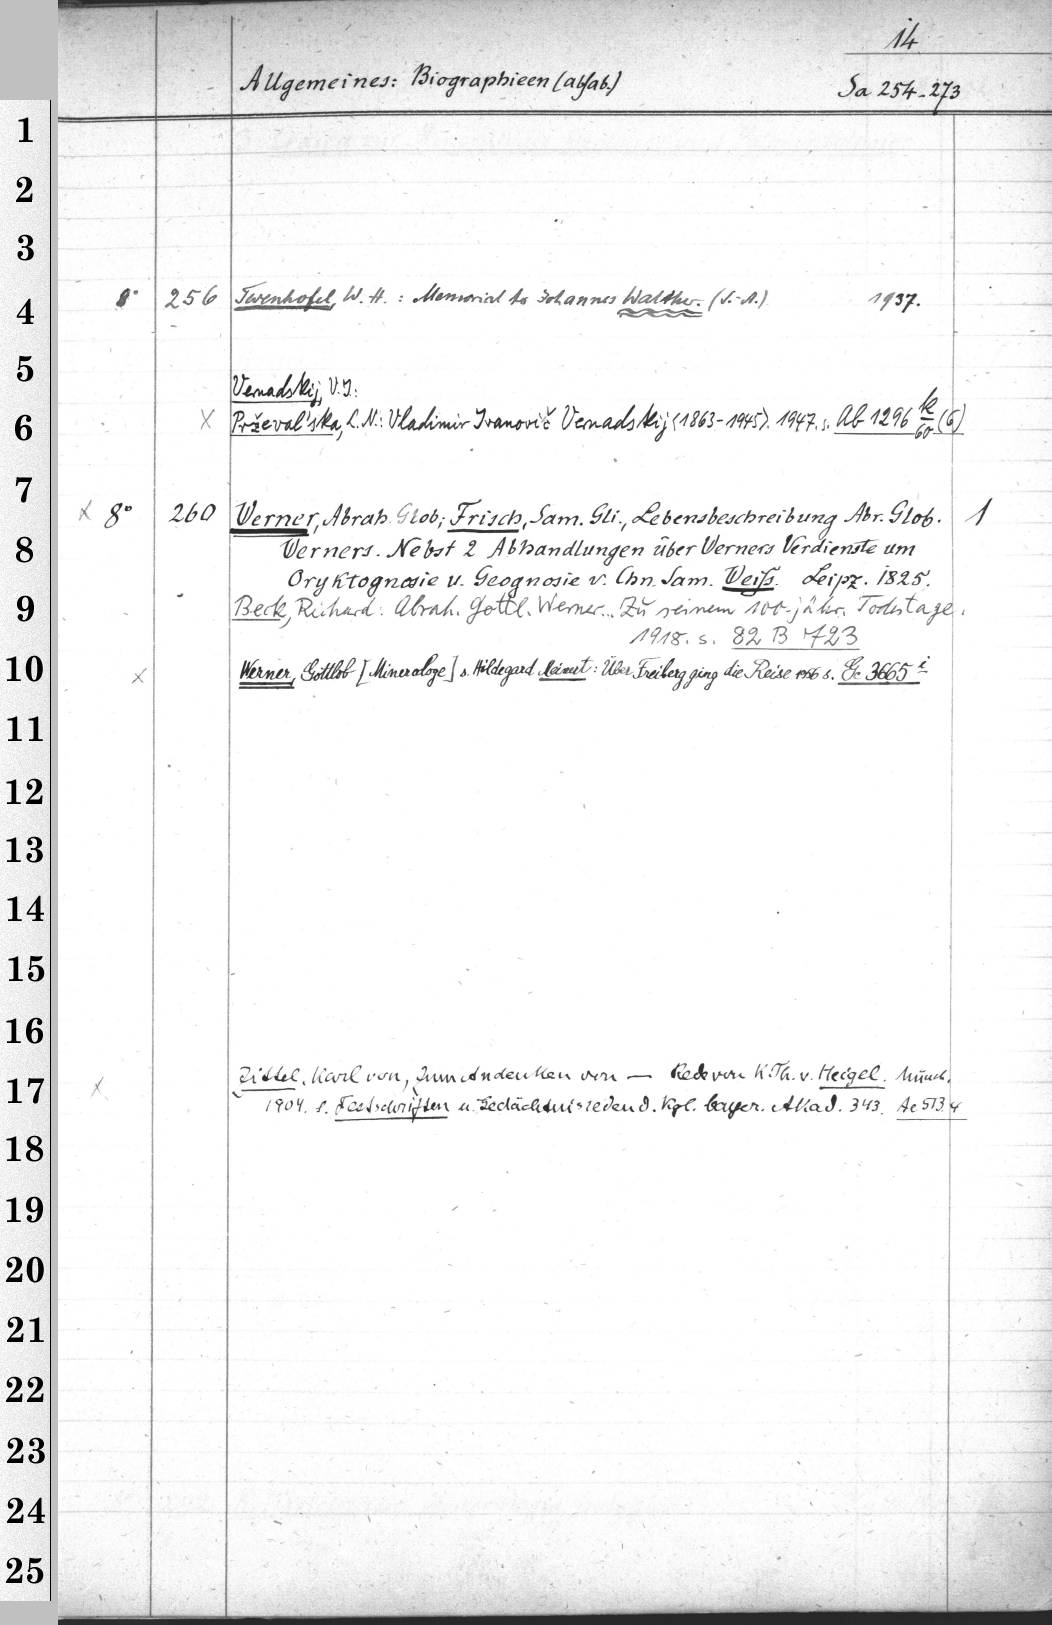 14
Allgemeines: Biographieen (alfab.)
Sa 254-273
1
2
3
4
8° 256 Twenhofel, W. H.: Memorial to Johannes Walther. (S.-A.) 1937.
5
Vernadskij, V. I.:
6
x Prževal'ska, L. N.: Vladimir Ivanovič Vernadskij <1863-1945>. 1947. s. Ab 1296 k/60 (6)
7
x 8° 260 Werner, Abrah. Glob; Frisch, Sam. Gli., Lebensbeschreibung Abr. Glob. 1
8
Werners. Nebst 2 Abhandlungen über Werners Verdienste um
Oryktognosie u. Geognosie v. Chn. Sam. Weiss. Leipz. 1825.
9
Beck, Richard: Abrah. Gottl. Werner... Zu seinem 100-jähr. Todestage.
1918. s. 82 B 723
10
x Werner, Gottlob [Mineraloge] s. Hildegard Meinert: Über Freiberg ging die Reise 1956 s. 3665 i
11
12
13
14
15
16
17
x Zittel, Karl von, Zum Andenken von — Rede von K. Th. v. Heigel. Münch.
1904. s. Festschriften u. Gedächtnisreden d. Kgl. bayer. Akad. 343. Ac 513 4
18
19
20
21
22
23
24
25